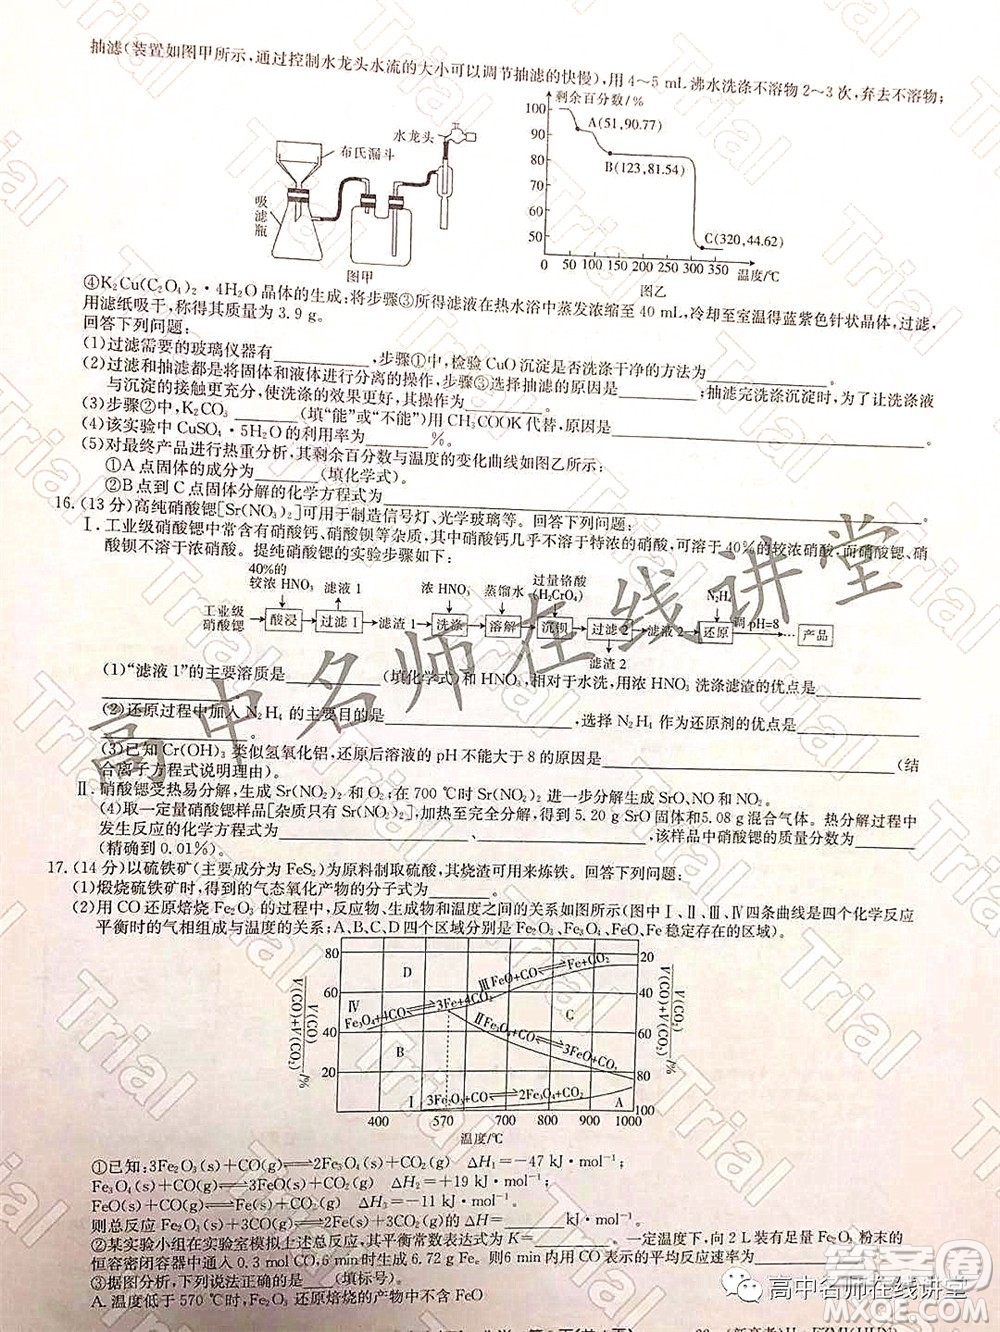 抽滤(装置如图甲所示,通过控制水龙头水流的大小可以调节抽滤的快慢),用4～5 mL沸水洗涤不溶物2～3次,弃去不溶物;
水龙头
布氏漏斗
吸滤瓶
图甲
剩余百分数/%
100
90
80
70
60
50
A(51,90.77)
B(123,81.54)
C(320,44.62)
0 50 100 150 200 250 300 350 温度/℃
图乙
④K₂Cu(C₂O₄)₂·4H₂O晶体的生成:将步骤③所得滤液在热水浴中蒸发浓缩至40 mL,冷却至室温得蓝紫色针状晶体,过滤,
用滤纸吸干,称得其质量为3.9 g。
回答下列问题:
(1)过滤需要的玻璃仪器有________,步骤①中,检验CuO沉淀是否洗涤干净的方法为________。
(2)过滤和抽滤都是将固体和液体进行分离的操作,步骤③选择抽滤的原因是________;抽滤完洗涤沉淀时,为了让洗涤液
与沉淀的接触更充分,使洗涤的效果更好,其操作为________。
(3)步骤②中,K₂CO₃________(填“能”或“不能”)用CH₃COOK代替,原因是________。
(4)该实验中CuSO₄·5H₂O的利用率为________%。
(5)对最终产品进行热重分析,其剩余百分数与温度的变化曲线如图乙所示:
①A点固体的成分为________(填化学式)。
②B点到C点固体分解的化学方程式为________。
16.(13分)高纯硝酸锶[Sr(NO₃)₂]可用于制造信号灯、光学玻璃等。回答下列问题:
Ⅰ.工业级硝酸锶中常含有硝酸钙、硝酸钡等杂质,其中硝酸钙几乎不溶于特浓的硝酸,可溶于40%的较浓硝酸,而硝酸锶、硝
酸钡不溶于浓硝酸。提纯硝酸锶的实验步骤如下:
40%的较浓HNO₃ 滤液1 浓HNO₃ 蒸馏水 过量铬酸(H₂CrO₄) N₂H₄
工业级硝酸锶 酸浸 过滤1 滤渣1 洗涤 溶解 沉钡 过滤2 滤液2 还原 调pH=8 产品
滤渣2
(1)“滤液1”的主要溶质是________(填化学式)和HNO₃,相对于水洗,用浓HNO₃洗涤滤渣的优点是________
________。
(2)还原过程中加入N₂H₄的主要目的是________,选择N₂H₄作为还原剂的优点是________
________。
(3)已知Cr(OH)₃类似氢氧化铝,还原后溶液的pH不能大于8的原因是________(结
合离子方程式说明理由)。
Ⅱ.硝酸锶受热易分解,生成Sr(NO₂)₂和O₂;在700 ℃时Sr(NO₂)₂进一步分解生成SrO、NO和NO₂。
(4)取一定量硝酸锶样品[杂质只有Sr(NO₂)₂],加热至完全分解,得到5.20 g SrO固体和5.08 g混合气体。预热分解过程中
发生反应的化学方程式为________、________,该样品中硝酸锶的质量分数为________
(精确到0.01%)。
17.(14分)以硫铁矿(主要成分为FeS₂)为原料制取硫酸,其烧渣可用来炼铁。回答下列问题:
(1)煅烧硫铁矿时,得到的气态氧化产物的分子式为________。
(2)用CO还原焙烧Fe₂O₃的过程中,反应物、生成物和温度之间的关系如图所示(图中Ⅰ、Ⅱ、Ⅲ、Ⅳ四条曲线是四个化学反应
平衡时的气相组成与温度的关系;A、B、C、D四个区域分别是Fe₂O₃、Fe₃O₄、FeO、Fe稳定存在的区域)。
V(CO)/V(CO)+V(CO₂)/%
V(CO₂)/V(CO)+V(CO₂)/%
80
60
40
20
20
40
60
80
100
D
Ⅲ FeO+CO⇌Fe+CO₂
Ⅳ Fe₃O₄+4CO⇌3Fe+4CO₂
C
Ⅱ Fe₃O₄+CO⇌3FeO+CO₂
B
Ⅰ 3Fe₂O₃+CO⇌2Fe₃O₄+CO₂
A
400 570 700 800 900 1000
温度/℃
①已知:3Fe₂O₃(s)+CO(g)⇌2Fe₃O₄(s)+CO₂(g) ΔH₁=-47 kJ·mol⁻¹;
Fe₃O₄(s)+CO(g)⇌3FeO(s)+CO₂(g) ΔH₂=+19 kJ·mol⁻¹;
FeO(s)+CO(g)⇌Fe(s)+CO₂(g) ΔH₃=-11 kJ·mol⁻¹。
则总反应Fe₂O₃(s)+3CO(g)⇌2Fe(s)+3CO₂(g)的ΔH=________kJ·mol⁻¹。
②某实验小组在实验室模拟上述总反应,其平衡常数表达式K=________。一定温度下,向2 L装有足量Fe₂O₃粉末的
恒容密闭容器中通入3 mol CO,6 min时生成6.72 g Fe。则6 min内用CO表示的平均反应速率为________
③据图分析,下列说法正确的是________(填标号)。
A.温度低于570 ℃时,Fe₂O₃还原焙烧的产物中不含FeO
Trial
高中名师在线讲堂
高中名师在线讲堂
答案圈
MXQE.COM